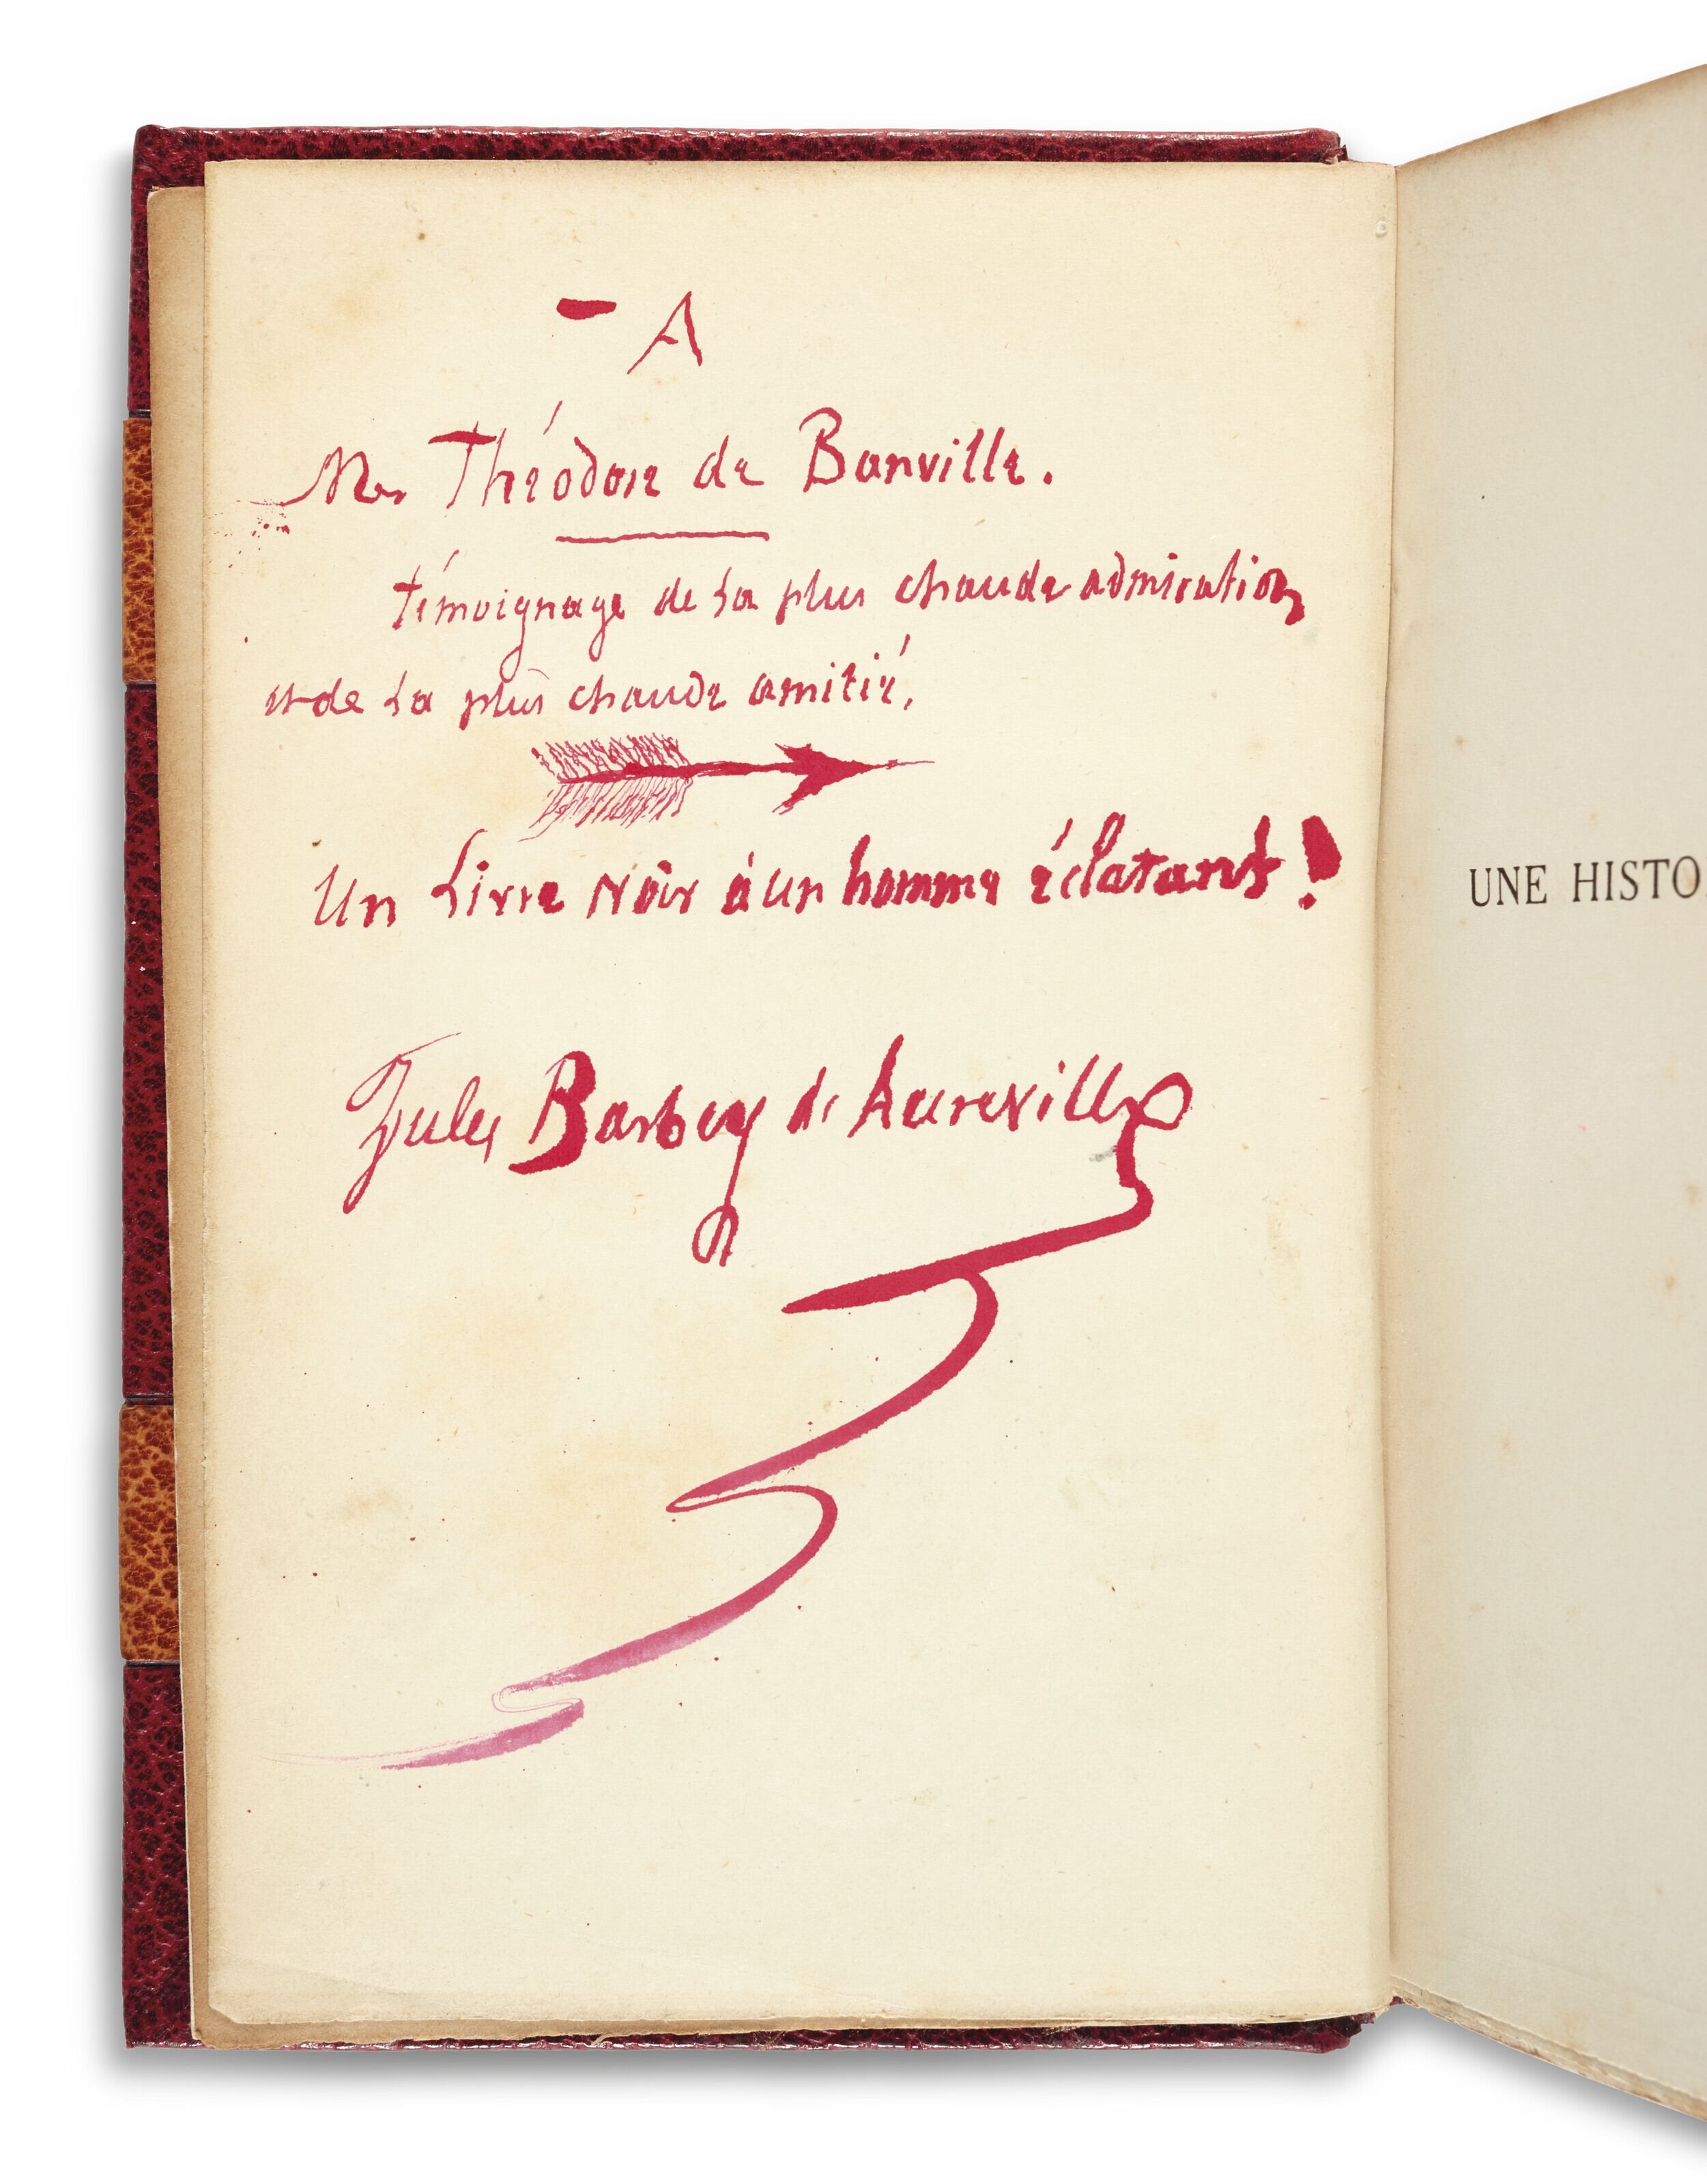 – A
Mr Théodore de Banville.
témoignage de la plus chaude admiration
et de la plus chaude amitié,
Un Livre Noir à un homme éclatant !
Jules Barbey d'Aurevilly
UNE HISTO